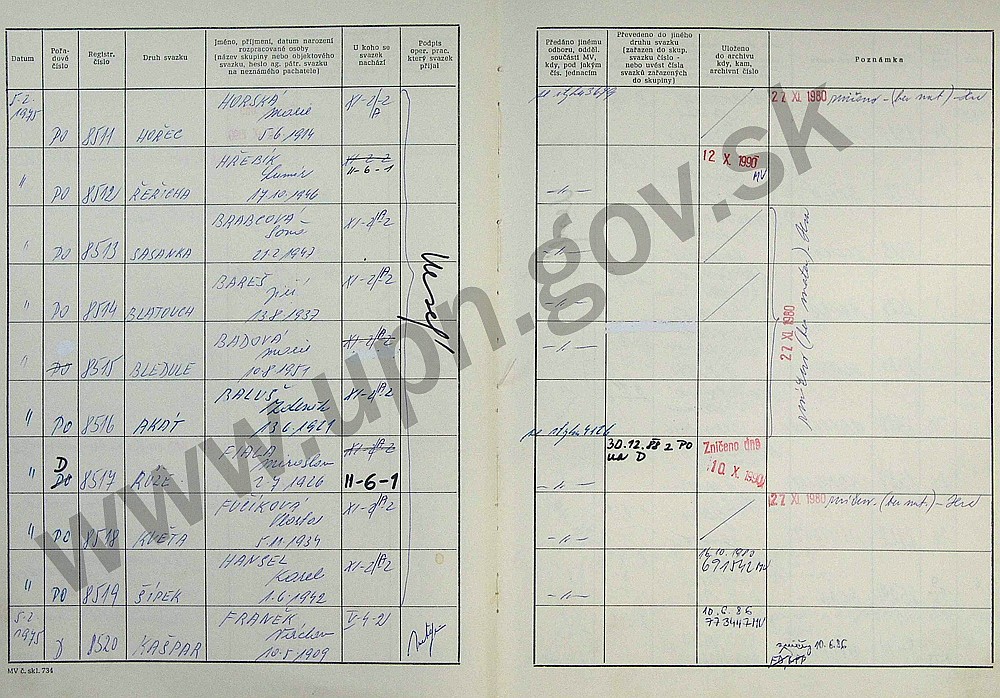 Datum
Pořadové číslo
Registr. číslo
Druh svazku
Jméno, příjmení, datum narození
rozpracované osoby
(název skupiny nebo objektového
svazku, heslo ag. pátr. svazku
na neznámého pachatele)
U koho se
svazek
nachází
Podpis
oper. prac.
který svazek
přijal
Předáno jinému
odboru, odděl.
součásti MV,
kdy, pod jakým
čís. jednacím
Převedeno do jiného
druhu svazku
(zařazen do skup.
svazku číslo -
nebo uvést čísla
svazků zařazených
do skupiny)
Uloženo
do archivu
kdy, kam,
archivní číslo
Poznámka
5.2. 1975 PO 8511 HOŘEC
HORSKÁ
Marie
5.6.1914
XI-2/A-2
22 XI. 1980 zničeno - (bez mat.)
" PO 8512 ŘEŘICHA
HŘEBÍK
Lumír
17.10.1946
XI-2-2
II-6-1
-"-
12 X. 1990
MV
" PO 8513 SASANKA
BRABCOVÁ
21.2.1947
XI-2/A-2
-"-
" PO 8514 BLATOUCH
BAREŠ
Jiří
13.8.1937
XI-2/A-2
-"-
" PO 8515 BLEDULE
BADOVÁ
Marie
10.8.1951
XI-2/A-2
-"-
22 XI 1980
" PO 8516 AKÁT
BALUŠ
Zdeněk
13.6.1921
XI-2/A-2
" D PO 8517 RŮŽE
FIALA
Miroslav
2.7.1926
XI-2/A-2
II-6-1
-"-
30.12.88 z PO
na D
Zničeno dne
10 X. 1990
" PO 8518 KVĚTA
FUČÍKOVÁ
Vlasta
5.11.1934
XI-2/A-2
-"-
22 XI 1980 zničen. (bez mat.)
" PO 8519 ŠÍPEK
HANSEL
Karel
1.6.1942
XI-2/A-2
-"-
16.10.1980
691842 MV
5.2. 1975 D 8520 KAŠPAR
FRANĚK
Václav
10.5.1909
V-4-2
10.6.86
773447 MV
10.6.86
MV č. skl. 734
www.upn.gov.sk